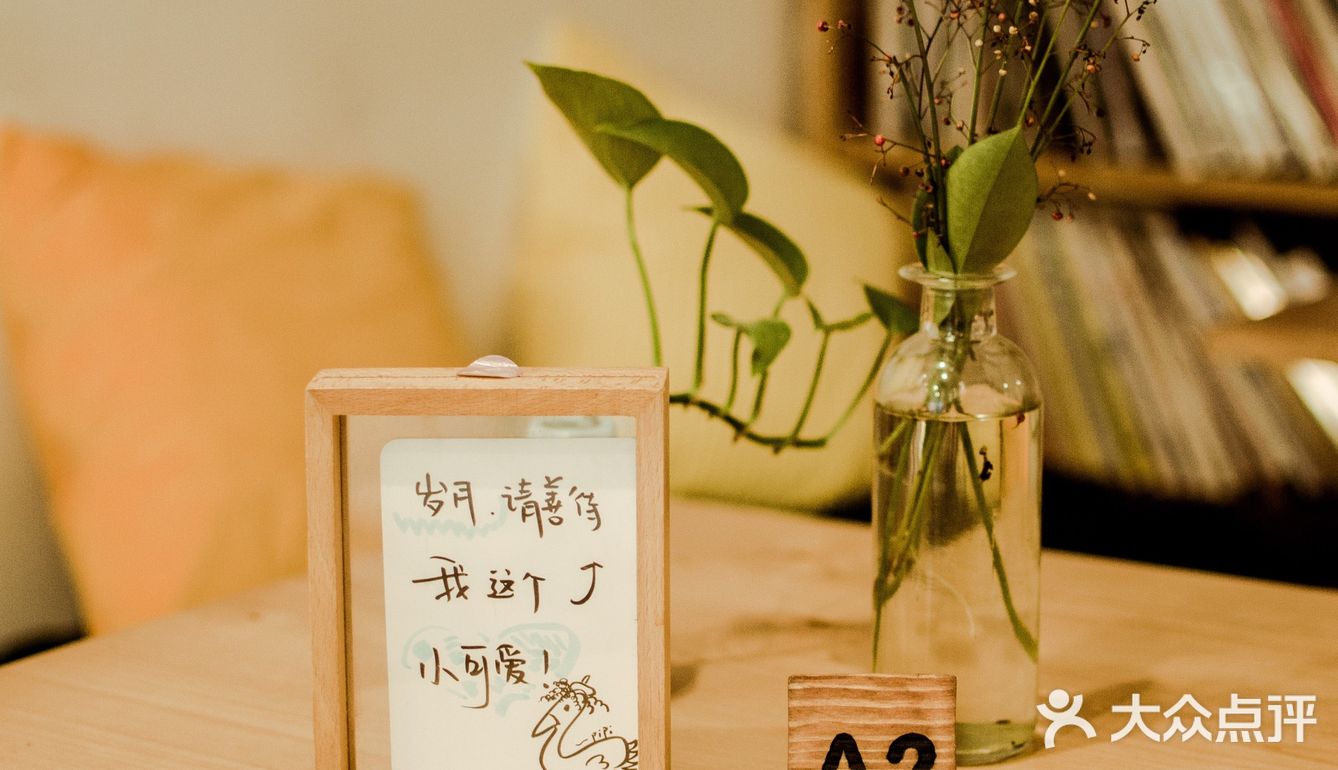 岁月.请善待
我这个
小可爱!
PiPi
A2
大众点评